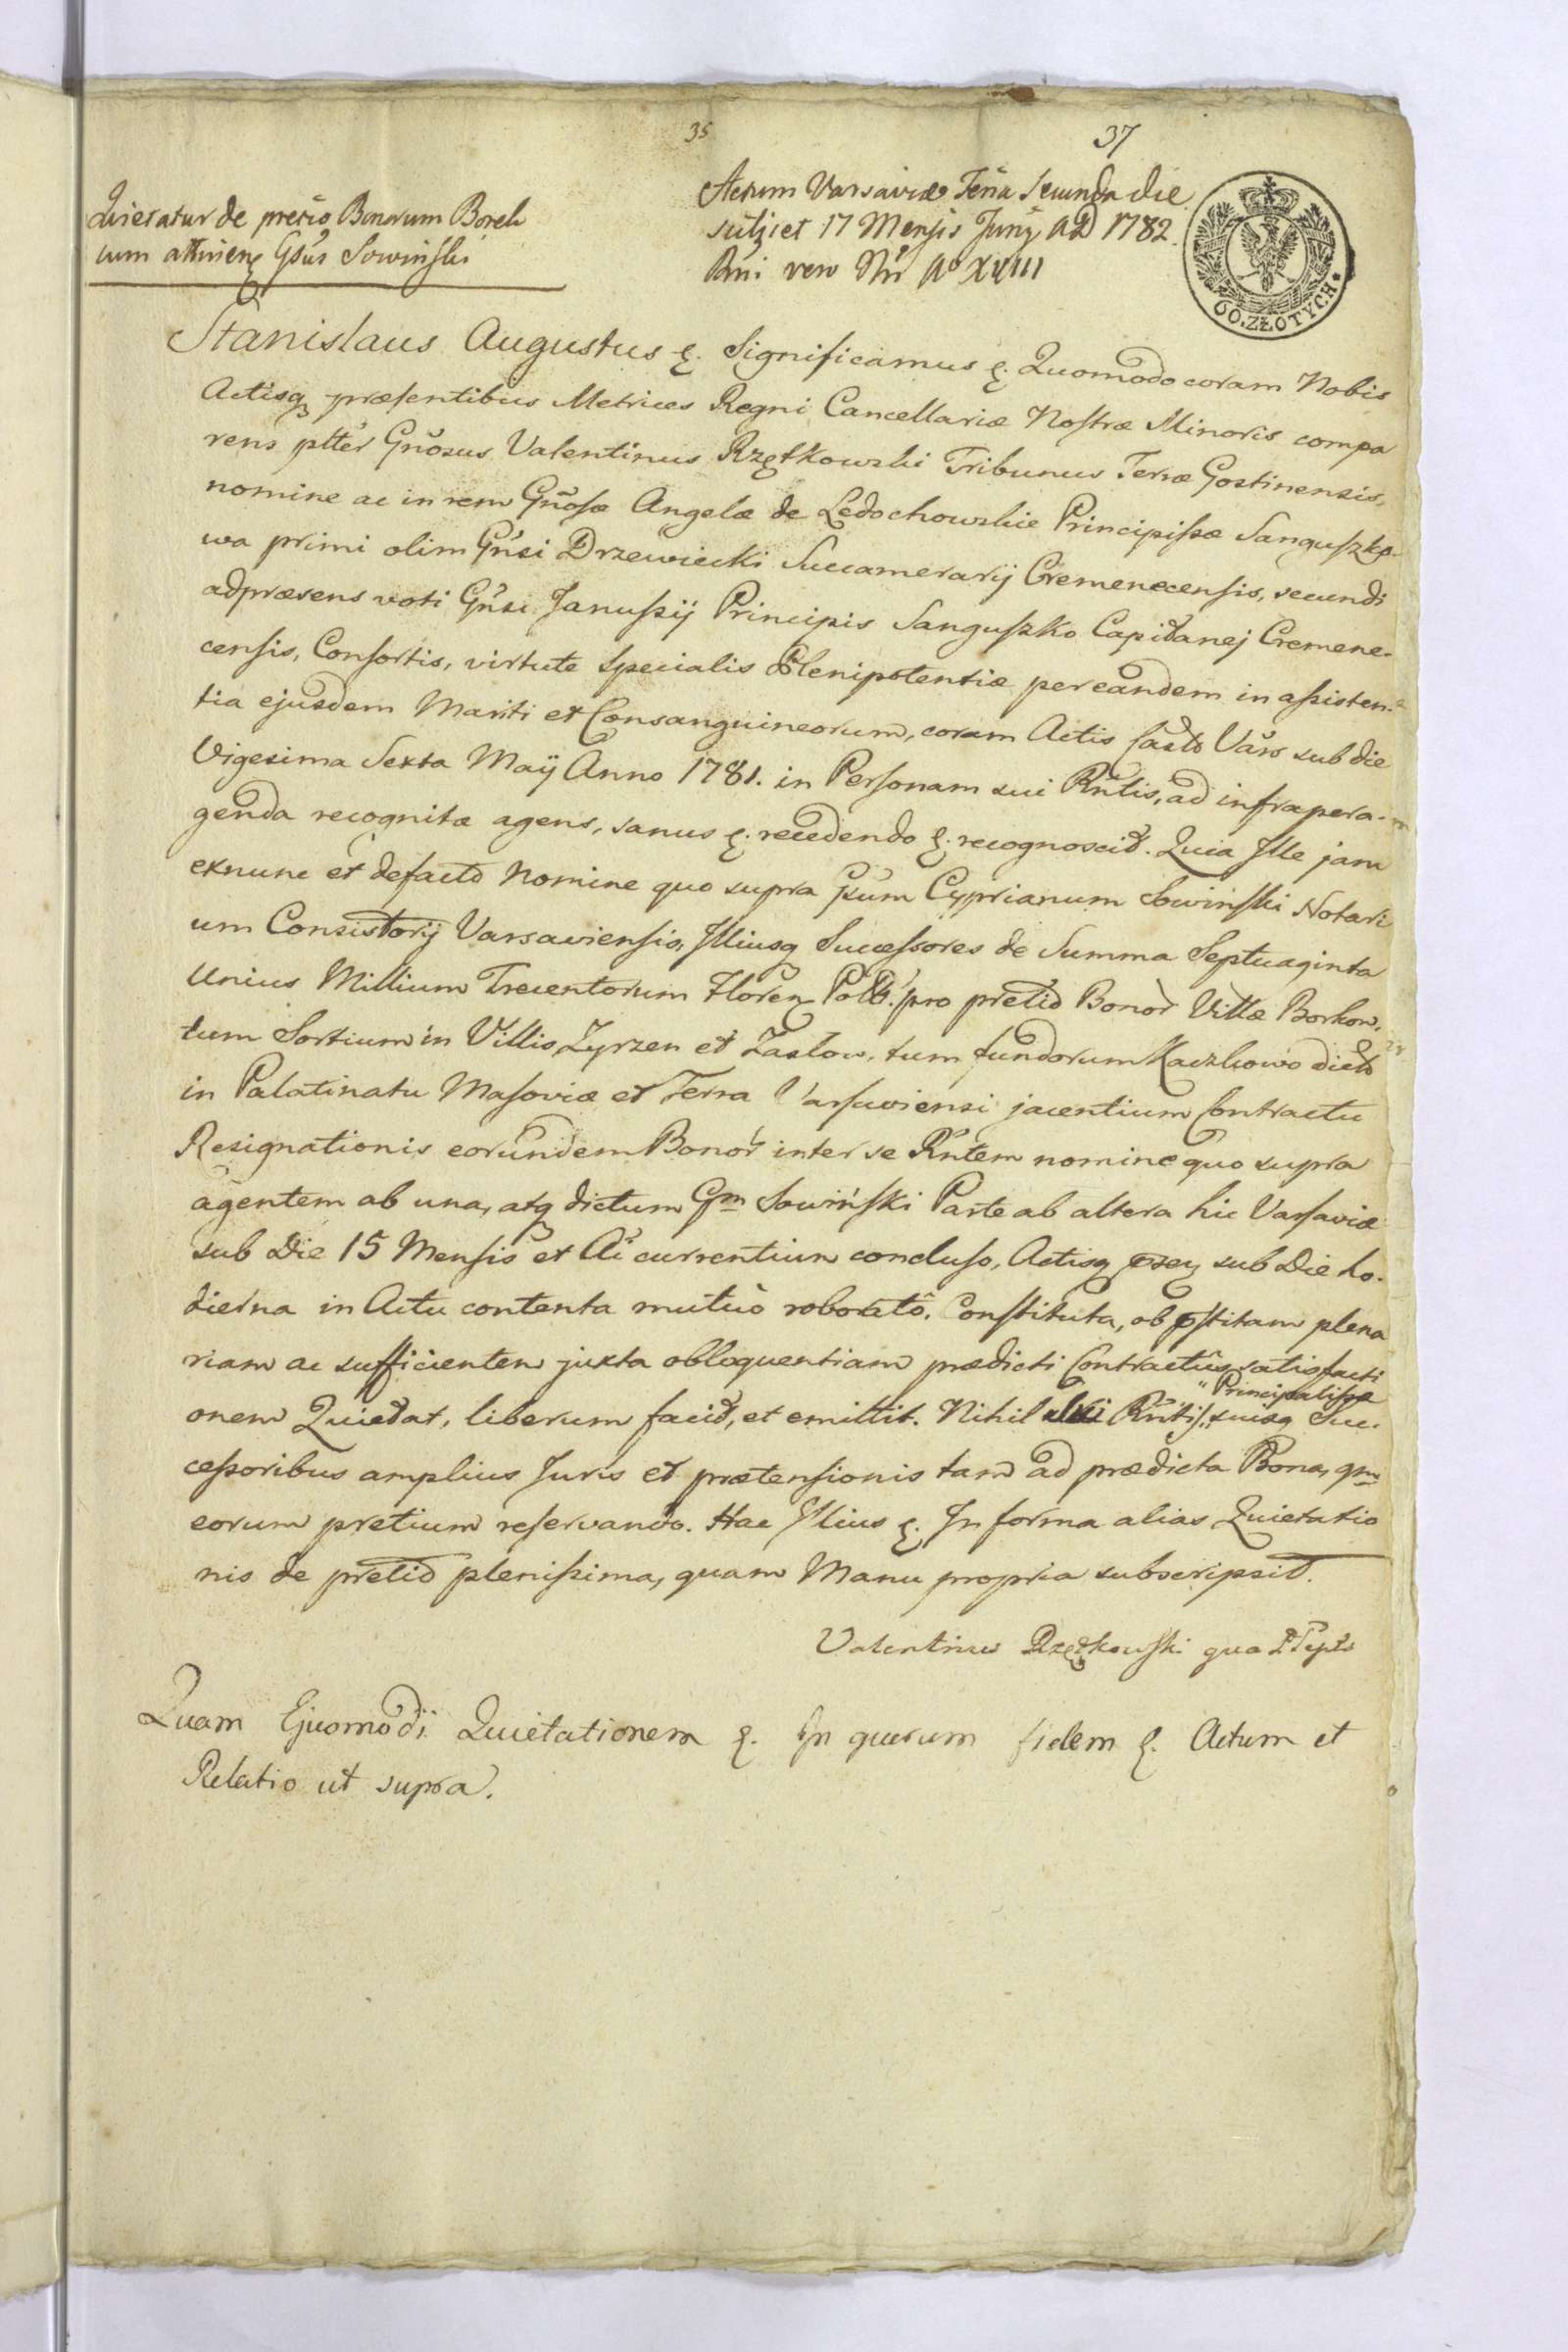 35
37
Quietatur de precio Bonorum Borek
cum attinen̄ Gsus Sowinski
Actum Varsaviæ Feria Secunda die
scilicet 17 Mensis Junij AD 1782.
Rni vero Nri Ao XVIII
60. ZŁOTYCH.
Stanislaus Augustus &. Significamus &. Quomodo coram Nobis
Actisq præsentibus Metrices Regni Cancellariæ Nostræ Minoris compa
rens plter Gnosus Valentinus Rzętkowski Tribunus Terræ Gostinensis,
nomine ac in rem Gnosæ Angelæ de Ledochowskie Principissæ Sanguszko
wa primi olim Gnsi Drzewiecki Succamerarij Cremenecensis, secundi
adpræsens voti Gnsi Januszij Principis Sanguszko Capitanej Cremene-
censis, Consortis, virtute specialis Plenipotentiæ pereandem in assisten-
tia ejusdem Mariti et Consanguineorum, coram Actis Casto Varo sub die
Vigesima Sexta Maij Anno 1781. in Personam sui Rntis, ad infrapera-
genda recognitæ agens, sanus &. recedendo &. recognoscit. Quia Ille jam
exnunc et defacto Nomine quo supra Gsum Cyprianum Sowinski Notari
um Consistorij Varsaviensis, Illiusq Successores de Summa Septuaginta
Unius Millium Trecentorum Floren Poll. pro pretio Bonor Villæ Borkow,
tum Sortium in Villis Zyrzen et Zaslow, tum fundorum Kaczkowo dicto
in Palatinatu Masoviæ et Terra Varsaviensi jacentium Contractu
Resignationis eorundem Bonor inter se Rntem nomine quo supra
agentem ab una, atq dictum Gm Sowiński Parte ab altera hic Varsaviæ
sub Die 15 Mensis et Ai currentium concluso, Actisq psen sub Die ho-
dierna in Actu contenta mutuò roboratô. Constituta, ob pstitam plena
riam ac sufficientem juxta obloquentiam prædicti Contractûs satisfacti
onem Quietat, liberum facit, et emittit. Nihil sui Rntis "Principalissæ suisq Suc-
cessoribus amplius Juris et prætensionis tam ad prædicta Bona, qm
eorum pretium reservando. Hac Illius &. In forma alias Quietatio
nis de pretio plenissima, quam Manu propria subscripsit.
Valentinus Rzętkowski qua Plepts
Quam Ejusmodi Quietationem &. In quorum fidem &. Actum et
Relatio ut supra.